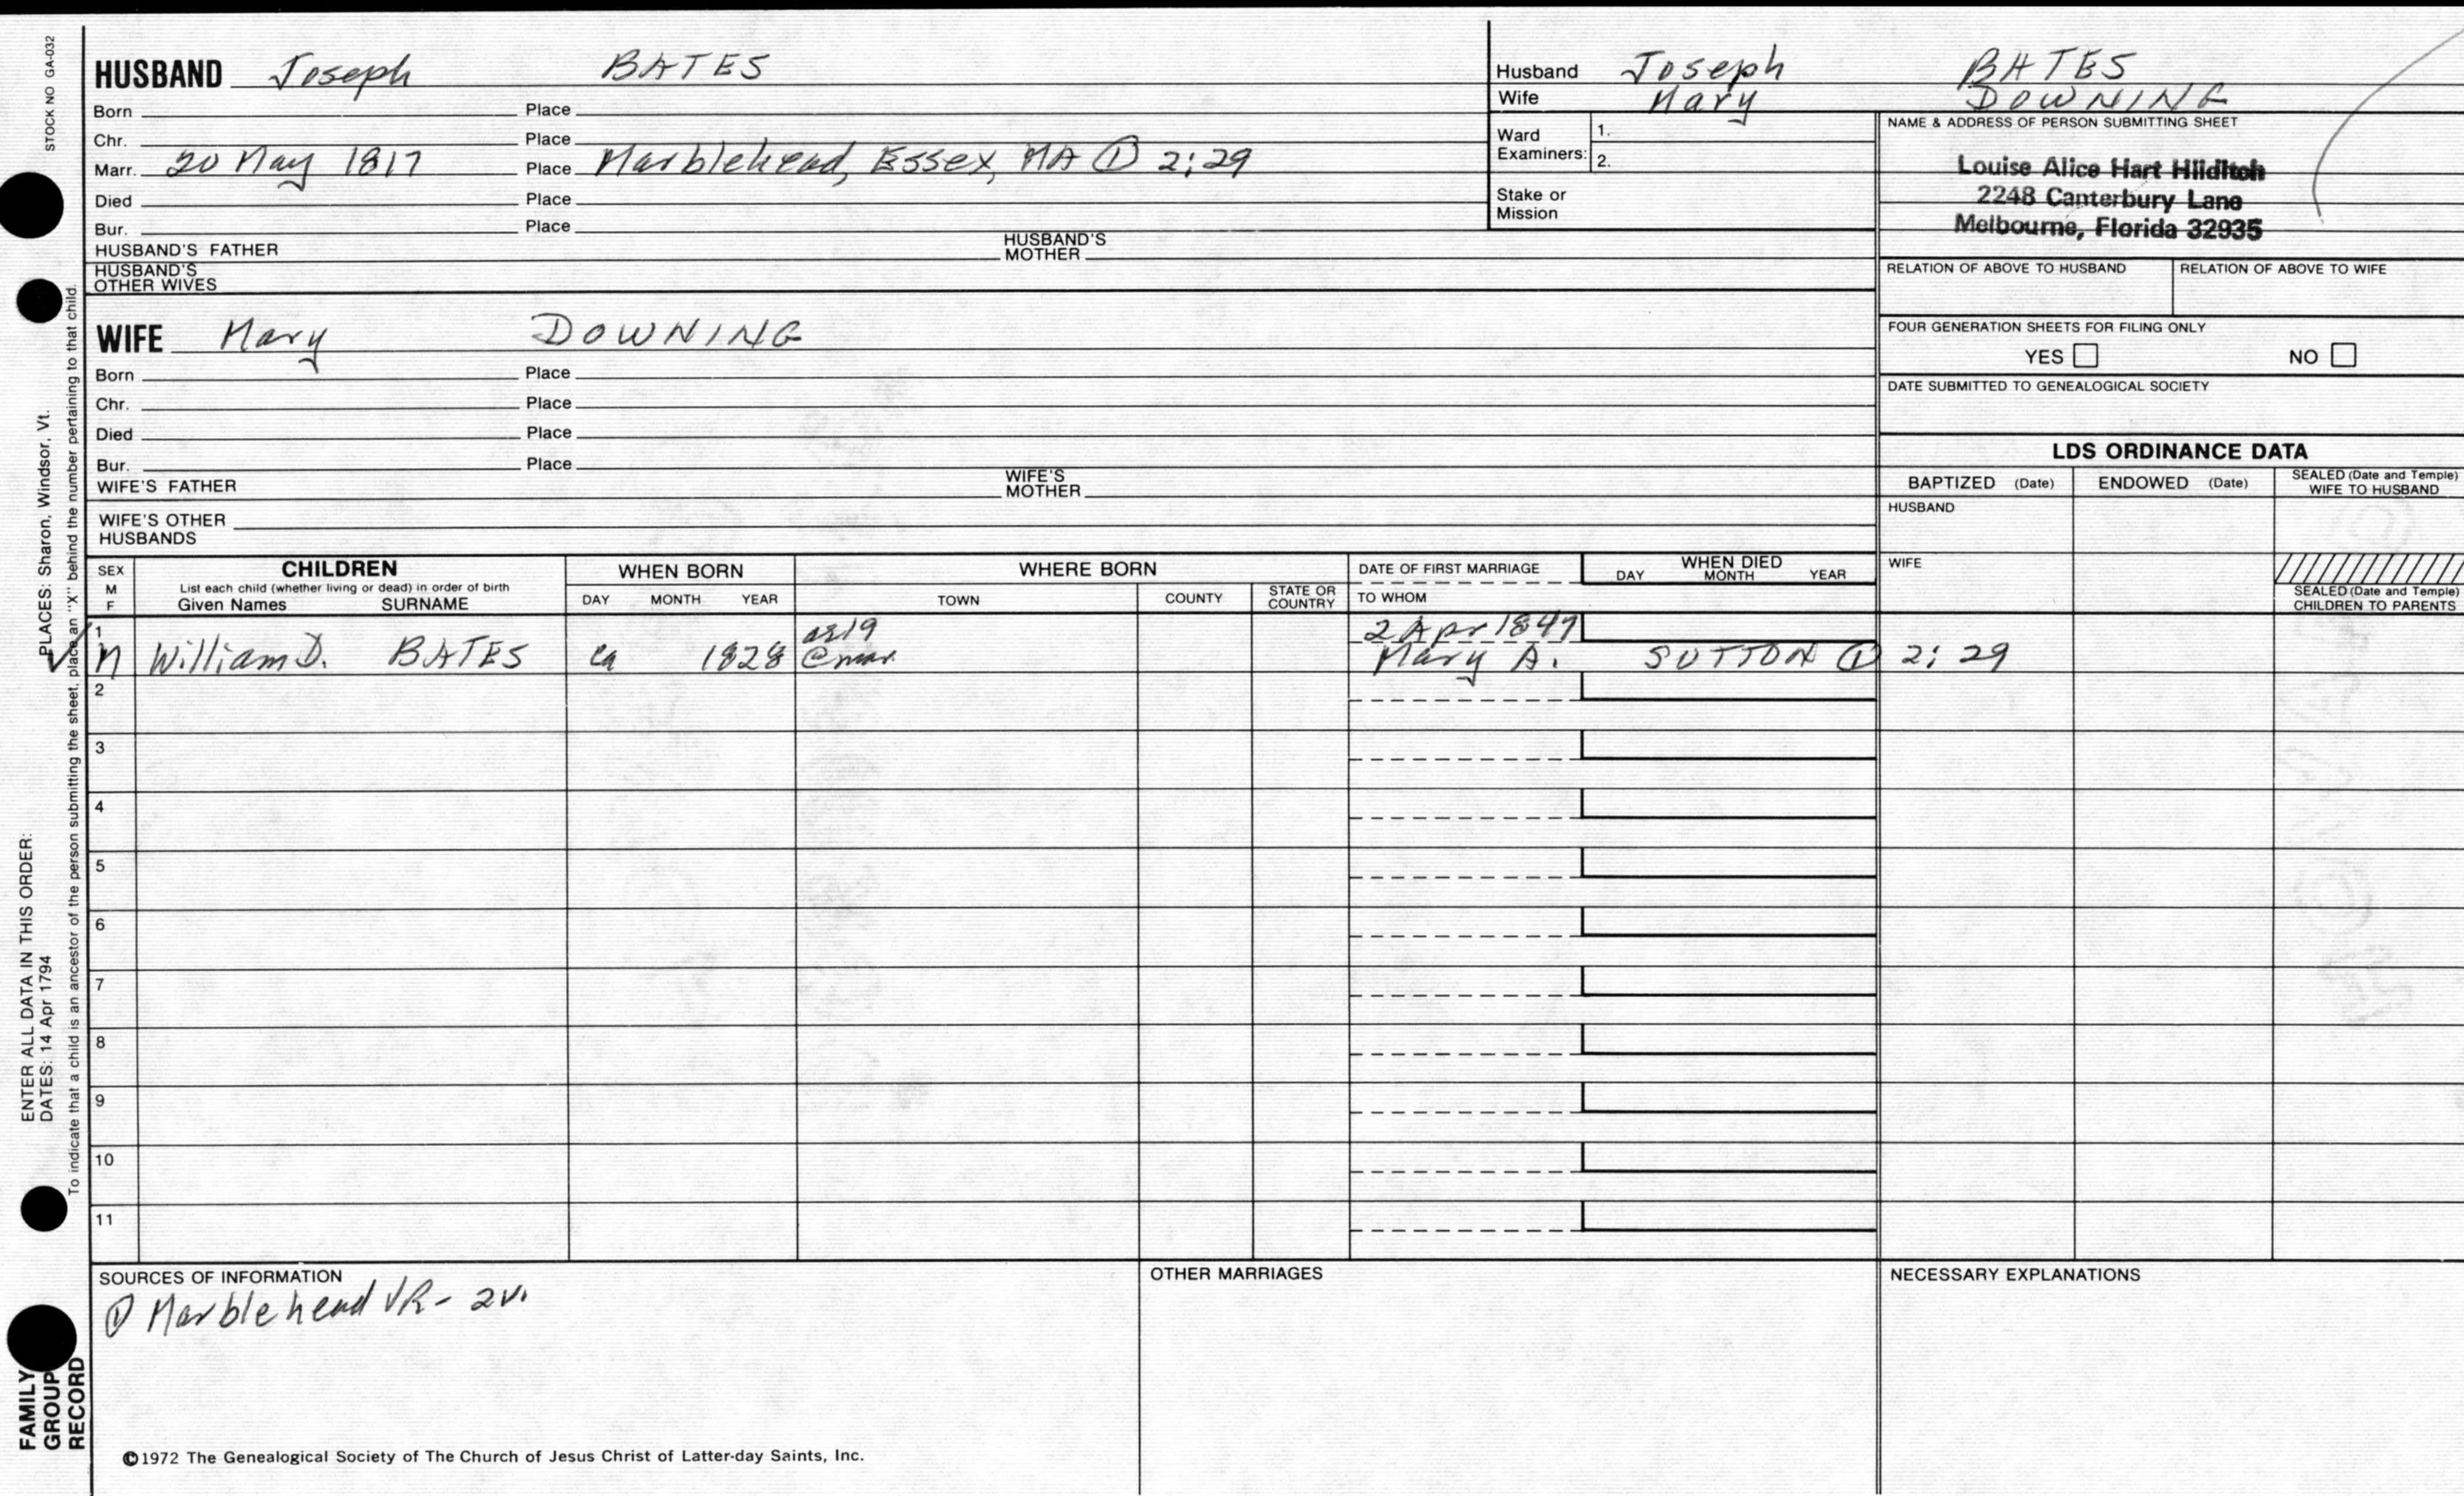 STOCK NO GA-032
HUSBAND Joseph BATES
Born Place
Chr. Place
Marr. 20 May 1817 Place Marblehead, Essex, MA ① 2:29
Died Place
Bur. Place
HUSBAND'S FATHER HUSBAND'S MOTHER
HUSBAND'S OTHER WIVES
Husband Joseph BATES
Wife Mary DOWNING
Ward Examiners: 1.
2.
Stake or Mission
NAME & ADDRESS OF PERSON SUBMITTING SHEET
Louise Alice Hart Hilditch
2248 Canterbury Lane
Melbourne, Florida 32935
RELATION OF ABOVE TO HUSBAND RELATION OF ABOVE TO WIFE
FOUR GENERATION SHEETS FOR FILING ONLY
YES NO
DATE SUBMITTED TO GENEALOGICAL SOCIETY
WIFE Mary DOWNING
Born Place
Chr. Place
Died Place
Bur. Place
WIFE'S FATHER WIFE'S MOTHER
WIFE'S OTHER HUSBANDS
LDS ORDINANCE DATA
BAPTIZED (Date) ENDOWED (Date) SEALED (Date and Temple) WIFE TO HUSBAND
HUSBAND
WIFE
SEALED (Date and Temple) CHILDREN TO PARENTS
SEX M F
CHILDREN
List each child (whether living or dead) in order of birth
Given Names SURNAME
WHEN BORN
DAY MONTH YEAR
WHERE BORN
TOWN COUNTY STATE OR COUNTRY
DATE OF FIRST MARRIAGE
TO WHOM
WHEN DIED
DAY MONTH YEAR
1 ae19 2 Apr 1847
✓ M William D. BATES ca 1828 @mar. Mary A. SUTTON ① 2:29
2
3
4
5
6
7
8
9
10
11
SOURCES OF INFORMATION
① Marblehead VR- 2v.
OTHER MARRIAGES
NECESSARY EXPLANATIONS
©1972 The Genealogical Society of The Church of Jesus Christ of Latter-day Saints, Inc.
FAMILY
GROUP
RECORD
ENTER ALL DATA IN THIS ORDER:
DATES: 14 Apr 1794 PLACES: Sharon, Windsor, Vt.
To indicate that a child is an ancestor of the person submitting the sheet, place an "X" behind the number pertaining to that child.